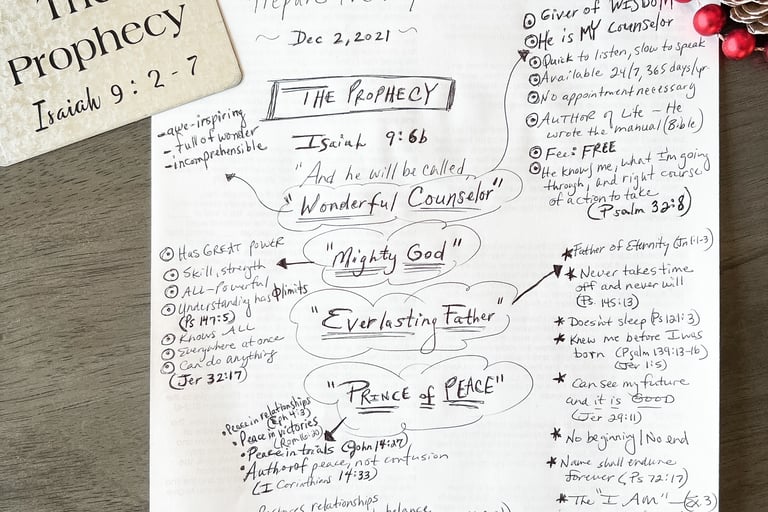 Prophecy
Isaiah 9:2-7
~ Dec 2, 2021 ~
THE PROPHECY
Isaiah 9:6b
"And he will be called
"Wonderful Counselor"
- awe-inspiring
- full of wonder
- incomprehensible
Giver of WISDOM
He is MY Counselor
Quick to listen, slow to speak
Available 24/7, 365 days/yr.
No appointment necessary
AUTHOR of Life - He
wrote the manual (Bible)
Fee: FREE
He knows me, what I'm going
through, and right course
of action to take
(Psalm 32:8)
"Mighty God"
Has GREAT power
Skill, strength
ALL-Powerful
Understanding has Ø limits
(Ps 147:5)
Knows ALL
Everywhere at once
Can do anything
(Jer 32:17)
"Everlasting Father"
* Father of Eternity (Jn 1:1-3)
* Never takes time
off and never will
(Ps. 145:13)
* Doesn't sleep (Ps 121:3)
* Knew me before I was
born (Psalm 139:13-16)
(Jer 1:5)
* Can see my future
and it is GOOD
(Jer 29:11)
* No beginning/No end
* Name shall endure
forever (Ps 72:17)
* The "I AM" - (Ex 3)
"PRINCE of PEACE"
• Peace in relationships
(Eph 4:3)
• Peace in victories
(Rom 16:20)
• Peace in trials (John 14:27)
• Author of peace, not confusion
(I Corinthians 14:33)
relationships
balance